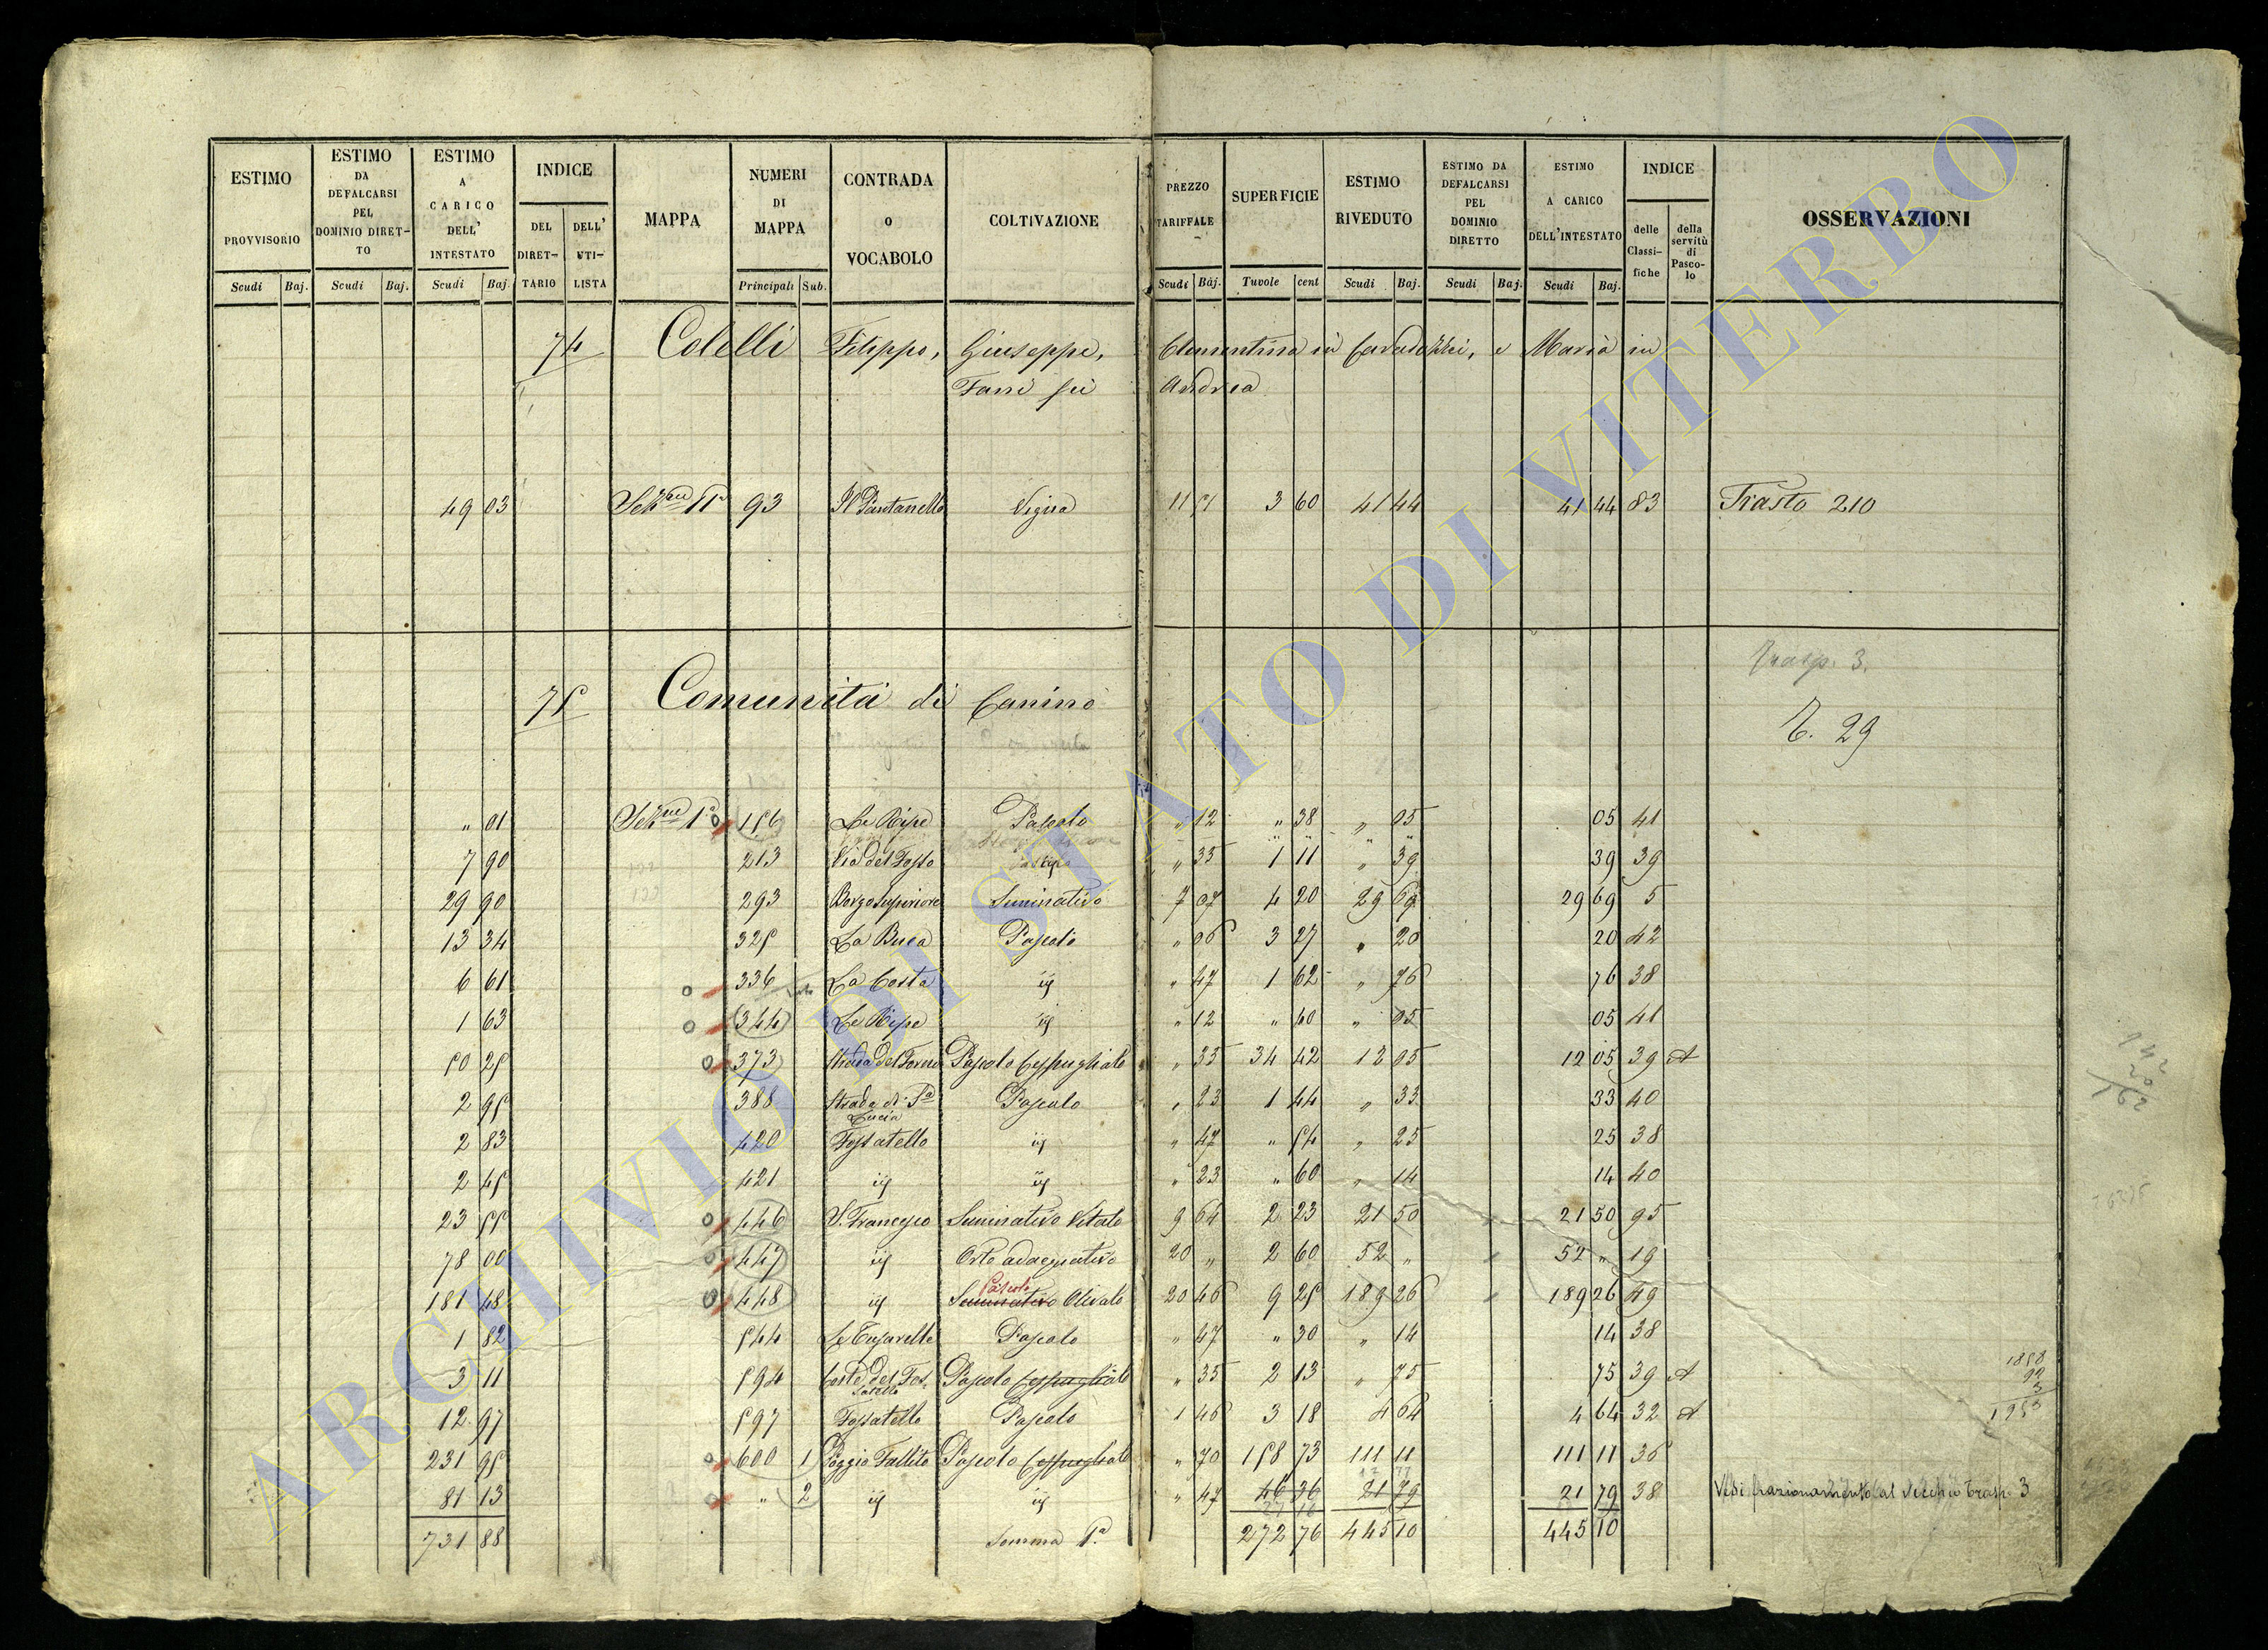 ESTIMO PROVVISORIO
ESTIMO DA DEFALCARSI PEL DOMINIO DIRETTO
ESTIMO A CARICO DELL' INTESTATO
INDICE
DEL DIRETTARIO
DELL' UTILISTA
MAPPA
NUMERI DI MAPPA
CONTRADA O VOCABOLO
COLTIVAZIONE
PREZZO TARIFFALE
SUPERFICIE
ESTIMO RIVEDUTO
ESTIMO DA DEFALCARSI PEL DOMINIO DIRETTO
ESTIMO A CARICO DELL'INTESTATO
INDICE
delle Classifiche
della servitù di Pascolo
OSSERVAZIONI
Scudi Baj. Scudi Baj. Scudi Baj. Principali Sub. Scudi Baj. Tavole cent Scudi Baj. Scudi Baj. Scudi Baj.
74 Colelli Filippo, Giuseppe, Clementina in e Maria in
Fanì fù Andrea
49 03 Sekne IIa 93 Il Pantanello Vigna 11 51 3 60 41 44 41 44 83 Trasto 210
Trasp. 3.
75 Comunità di Canino
T. 29
" 01 Sekne 1a 156 Le Ripe Pascolo " 12 " 38 " 05 05 41
7 90 213 Via del Fosso " 35 1 11 " 39 39 39
29 90 293 Borgo Superiore Seminativo 7 07 4 20 29 69 29 69 5
13 34 325 La Buca Pascolo " 06 3 27 " 20 20 42
6 61 336 La Costa ii " 47 1 62 " 76 76 38
1 63 344 Le Ripe ii " 12 " 40 " 05 05 41
50 25 373 Strada del Forno Pascolo Cespugliato " 35 34 42 12 05 12 05 39 A
2 95 388 Strada di Sa Lucia Pascolo " 23 1 44 " 33 33 40
2 83 420 Fossatello ii " 47 " 54 " 25 25 38
2 45 421 ii ii " 23 " 60 " 14 14 40
23 55 446 S. Francesco Seminativo Vitato 9 64 2 23 21 50 21 50 95
78 00 447 ii Orto adacquativo 20 " 2 60 52 " 52 " 19
Pascolo
181 48 448 ii Seminativo Olivato 20 46 9 25 189 26 189 26 49
1 82 544 Le Pascolo " 47 " 30 " 14 14 38
3 11 594 Coste del Fossatello Pascolo Cespugliato " 35 2 13 " 75 75 39 A
12 97 597 Fossatello Pascolo 1 46 3 18 4 64 4 64 32 A
231 95 600 1 Poggio Fallito Pascolo Cespugliato " 70 158 73 111 11 111 11 36
81 13 " 2 ii ii " 47 46 36 21 79 21 79 38 Vedi frazionamento al vecchio Trasp. 3
731 88 Somma 1a. 272 76 445 10 445 10
142
20
162
1858
92
3
1953
ARCHIVIO DI STATO DI VITERBO